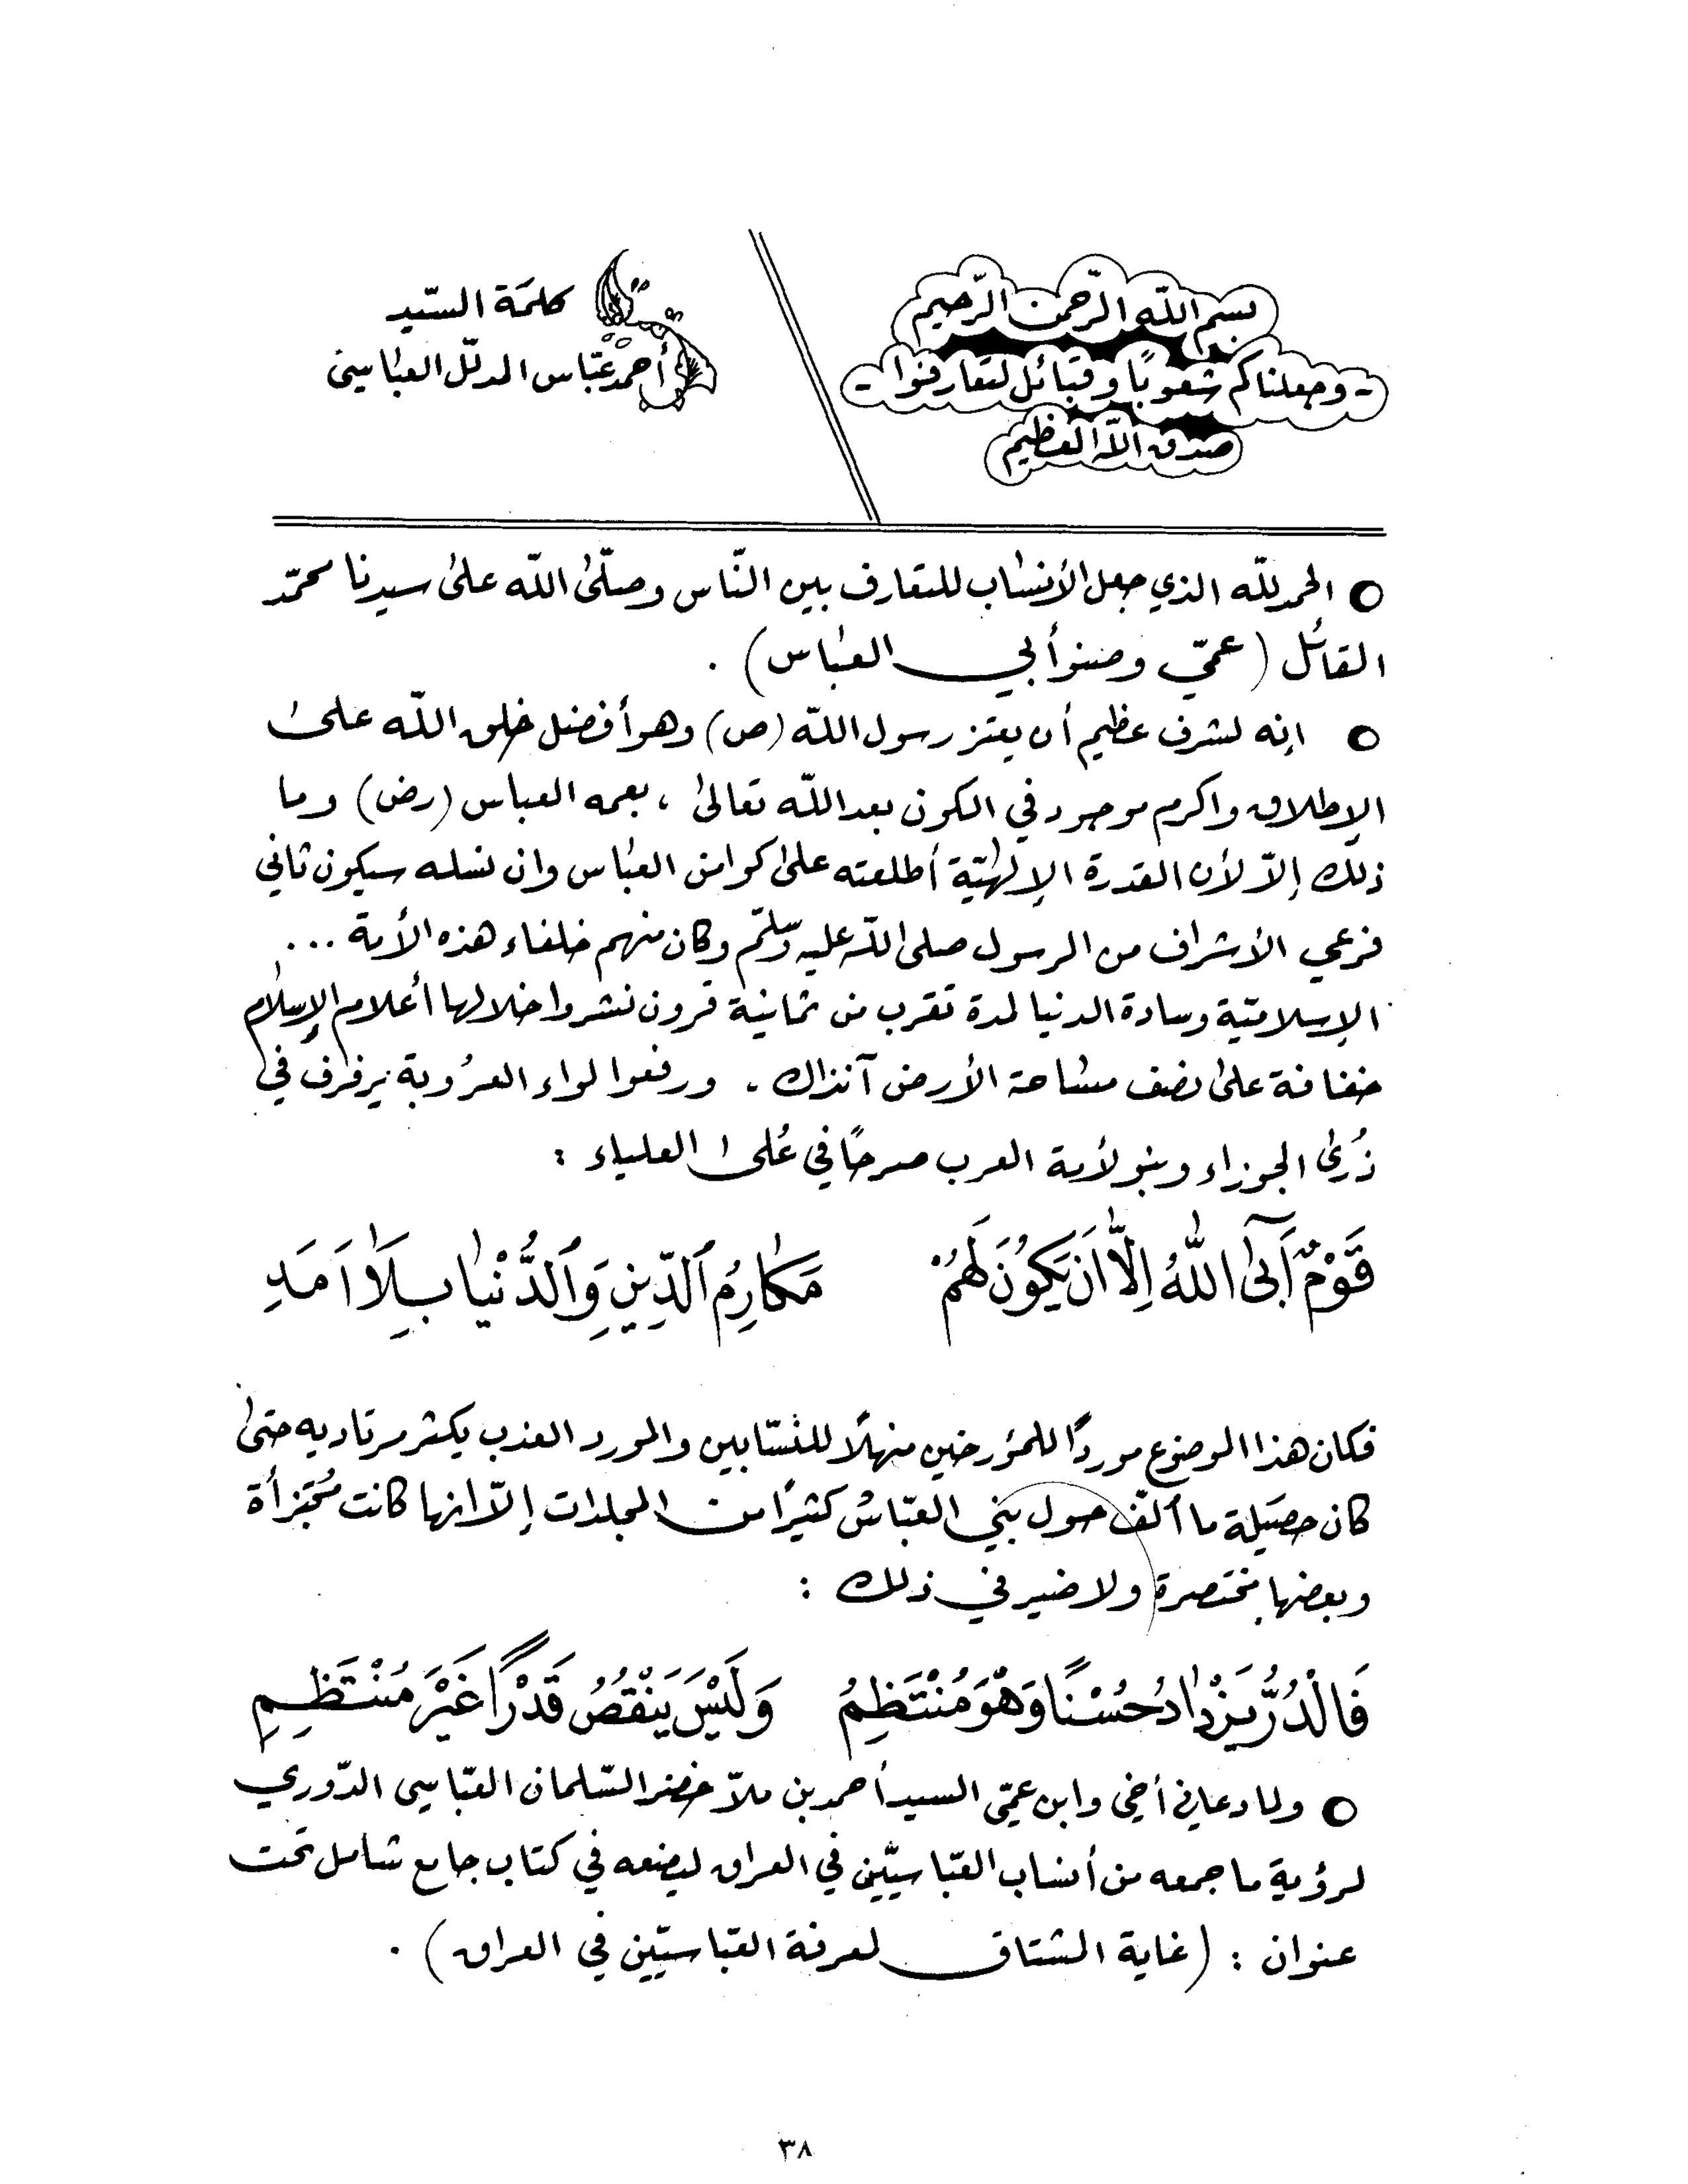 بسم الله الرّحمن الرّحيم
- وجعلناكم شعوبًا وقبائل لتعارفوا -
صدق الله العظيم
كلمَة السّيد
أحمد عبّاس المدلّل العبّاسي
○ الحمد لله الذي جعل الأنساب للتعارف بين النّاس وصلّى الله على سيدنا محمّد
القائل (عمّي وصنو أبي العبّاس) .
○ إنه لشرف عظيم أن يعتز رسول الله (ص) وهو أفضل خلق الله على
الإطلاق واكرم موجود في الكون بعد الله تعالى ، بعمه العباس (رض) وما
ذلك إلاّ لأن القدرة الإلهيّة أطلعته على كوامن العبّاس وان نسله سيكون ثاني
فرعي الأشراف من الرسول صلى الله عليه وسلّم وكان منهم خلفاء هذه الأمة ...
الإسلاميّة وسادة الدنيا لمدة تقرب من ثمانية قرون نشروا خلالها أعلام الإسلام
خفاقة على نصف مساحة الأرض آنذاك . ورفعوا لواء العرُوبة يرفرف في
ذُرى الجوزاء وبنو لأمة العرب صرحًا في عُلى العلياء :
قَوْمٌ أَبَى اللهُ إِلَّا اَنْ يَكُونَ لَهُمْ مَكَارِمُ ٱلدِّينِ وَٱلدُّنْيَا بِلَا اَمَدِ
فكان هذا الموضوع موردًا للمؤرخين منهلًا للنسّابين والمورد العذب يكثر مرتاديه حتى
كان حصَيلة ما ألّف حول بني العبّاس كثيرًا من المجلدات إلاّ انها كانت مُجتزأة
وبعضها مختصرة ولا ضير في ذلك :
فَالْدُرُّ يَزْدَادُ حُسْنًا وَهْوَ مُنْتَظِمُ وَلَيْسَ يَنْقُصُ قَدْرًا غَيْرَ مُنْتَظِمِ
○ ولما دعاني أخي وابن عمّي السيد أحمد بن ملاّ خضر السّلمان العبّاسي الدّوري
لرؤية ما جمعه من أنساب العبّاسيّين في العراق ليضعه في كتاب جامع شامل تحت
عنوان : (غاية المشتاق لمعرفة العبّاسيّين في العراق) .
٣٨